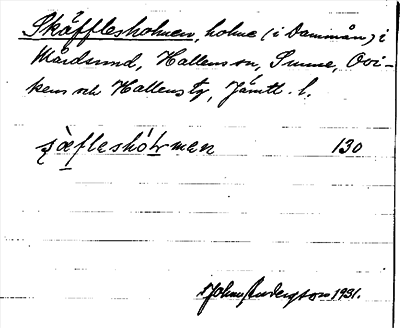 Skäfflesholmen, holme (i Dammån) i
Mårdsund, Hallens sn, Sunne, Ovi-
kens och Hallens tg, Jämtl. l.
ʃæ̀fleshól̥men 130
Johan Andersson 1931.